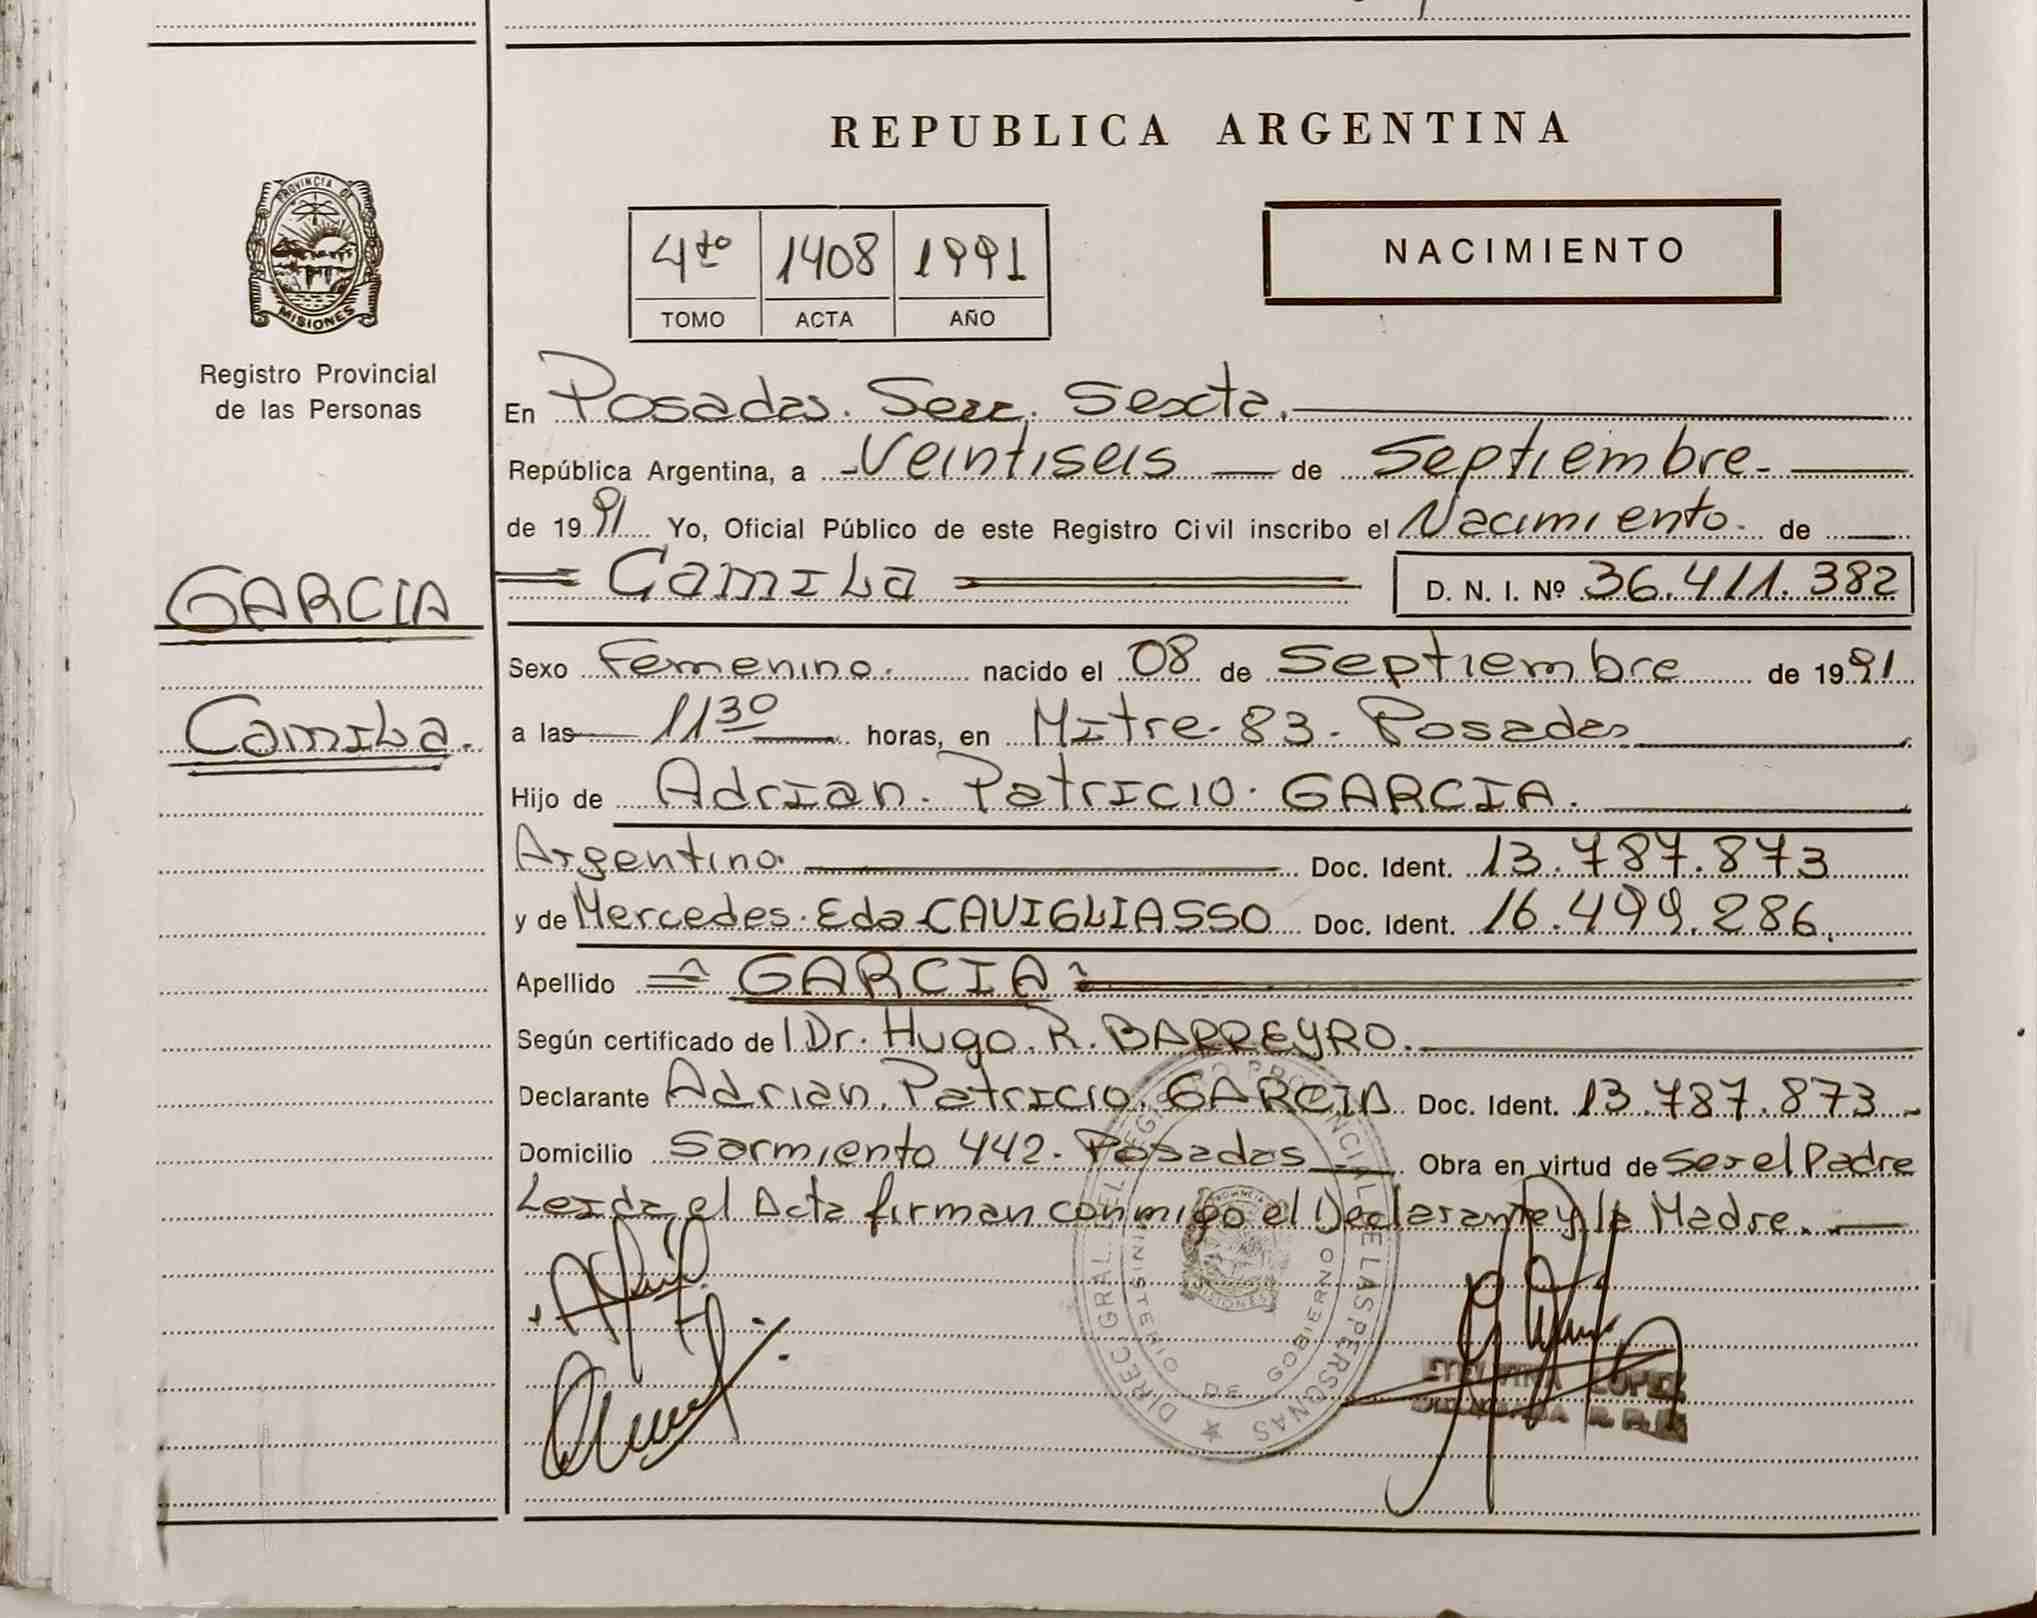 REPUBLICA ARGENTINA
PROVINCIA DE
MISIONES
Registro Provincial
de las Personas
4to 1408 1991
TOMO ACTA AÑO
NACIMIENTO
En Posadas. Secc. Sexta.
República Argentina, a Veintiseis de Septiembre.
de 1991 Yo, Oficial Público de este Registro Civil inscribo el Nacimiento. de
GARCIA
Camila D. N. I. Nº 36.411.382
Sexo Femenino. nacido el 08 de Septiembre de 1991
Camila.
a las 11 30 horas, en Mitre. 83. Posadas
Hijo de Adrian. Patricio. GARCIA.
Argentino. Doc. Ident. 13.787.873
y de Mercedes. Eda CAVIGLIASSO Doc. Ident. 16.499.286.
Apellido GARCIA
Según certificado del Dr. Hugo. R. BARREYRO.
Declarante Adrian. Patricio. GARCIA Doc. Ident. 13.787.873
Domicilio Sarmiento 442. Posadas Obra en virtud de Ser el Padre
Leida el Acta firman conmigo el Declarante y la Madre.
DIREC. GRAL. DEL REGISTRO PROVINCIAL DE LAS PERSONAS
MINISTERIO DE GOBIERNO
PROVINCIA
MISIONES
LOPEZ